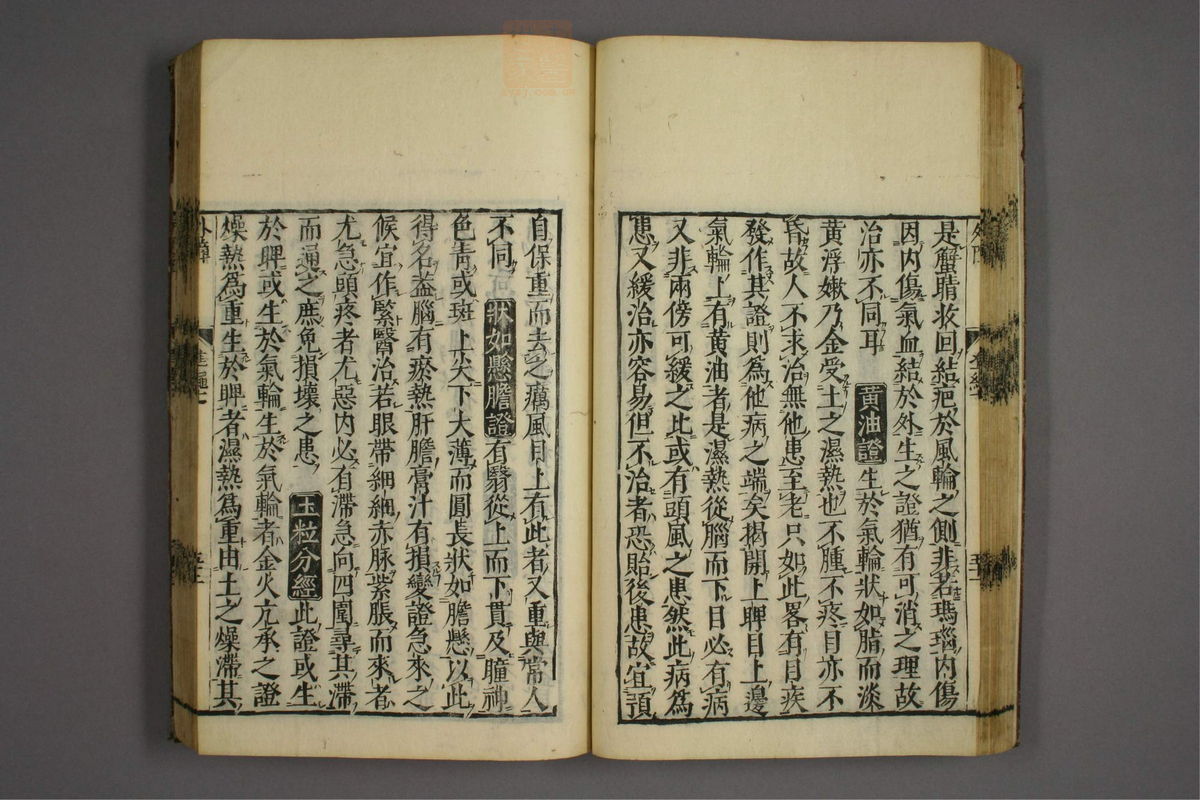 是蟹睛收回結疤於風輪之側非若瑪瑙内傷
因内傷氣血結於外生之證猶有可消之理故
治亦不同耳 黃油證生於氣輪狀如脂而淡
黃浮嫩乃金受土之濕熱也不腫不疼目亦不
昏故人不求治無他患至老只如此畧有目疾
發作其證則爲他病之端矣揭開上睥目上邊
氣輪上有黃油者是濕熱從腦而下日必有病
又非兩傍可緩之比或有頭風之患然此病爲
患又緩治亦容易但不治者恐貽後患故宜預
自保重而去之癘風目上有此者又重與常人
不同 狀如懸膽證有翳從上而下貫及瞳神
色靑或斑上尖下大薄而圓長狀如膽懸以此
得名葢腦有瘀熱肝膽膏汁有損變證急來之
候宜作緊醫治若眼帶細細赤脉紫脹而來者
尤急頭疼者尤惡内必有滯急向四圍尋其滯
而通之庶免損壞之患 玉粒分經此證或生
於睥或生於氣輪生於氣輪者金火亢承之證
燥熱爲重生於睥者濕熱爲重由土之燥滯其